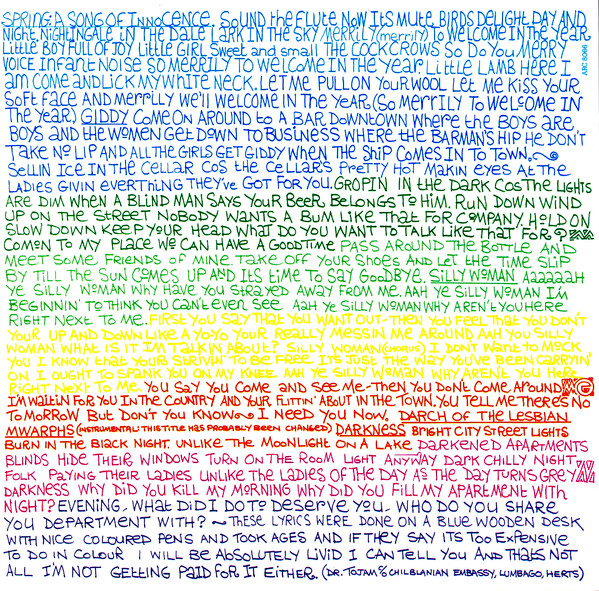 SPRING: A SONG OF INNOCENCE. SOUND the FLUTE NOW ITS MUTE, BIRDS DELIGHT DAY AND
NIGHT, NIGHTINGALE IN THE DALE LARK IN THE SKY MERRILY (merrily) TO WELCOME IN THE YEAR
LITTLE BOY FULL OF JOY LITTLE GIRL SWEET and SMALL THE COCK CROWS SO DO YOU MERRY
VOICE INFANT NOISE SO MERRILY TO WELCOME IN THE YEAR. LITTLE LAMB HERE I
am COME AND LICK MY WHITE NECK. LET ME PULL ON YOUR WOOL LET ME KISS YOUR
SOFT FACE AND MERRILLY WE'LL WELCOME IN THE YEAR (SO MERRILY TO WELCOME IN
THE YEAR) GIDDY COME ON AROUND to A BAR DOWNTOWN WHERE the BOYS ARE
BOYS AND the WOMEN GET DOWN TO BUSINESS WHERE THE BARMAN'S HIP HE DON'T
TAKE NO LIP AND ALL THE GIRLS GET GIDDY WHEN THE SHIP COMES IN TO TOWN.
SELLIN ICE IN THE CELLAR COS the CELLAR'S PRETTY HOT MAKIN EYES AT THE
LADIES GIVIN EVERTHING THEY'VE GOT FOR YOU. GROPIN IN the DARK COS THE LIGHTS
ARE DIM WHEN A BLIND MAN SAYS YOUR BEER BELONGS TO HIM. RUN DOWN WIND
UP ON THE STREET NOBODY WANTS A BUM LIKE THAT FOR COMPANY HOLD ON
SLOW DOWN KEEP YOUR HEAD WHAT DO YOU WANT TO TALK LIKE THAT FOR?
COMON TO MY PLACE WE CAN HAVE A GOODTIME PASS AROUND THE BOTTLE AND
MEET SOME FRIENDS OF MINE. TAKE OFF YOUR SHOES AND LET the TIME SLIP
BY TILL THE SUN COMES UP AND ITS tIME TO SAY GOODBYE. SILLY WOMAN AAAAAAH
YE SILLY WOMAN WHY HAVE YOU STRAYED AWAY FROM ME. AAH YE SILLY WOMAN I'M
BEGINNIN' TO THINK YOU CAN'T EVEN SEE AAH YE SILLY WOMAN WHY AREN'T YOU HERE
RIGHT NEXT TO ME. FIRST YOU SAY THAT YOU WANT OUT - THEN YOU FEEL THAT YOU DON'T
YOUR UP AND DOWN LIKE A YOYO YOUR REALLY MESSIN ME AROUND AAH YOU SILLY
WOMAN WHAT IS IT IM TALKIN ABOUT? SILLY WOMAN (CHORUS) I DON'T WANT TO MOCK
YOU I KNOW THAT YOUR STRIVIN TO BE FREE ITS JUST THE WAY YOU'VE BEEN CARRYIN'
ON I OUGHT TO SPANK YOU ON MY KNEE AAH YE SILLY WOMAN WHY ARENT YOU HERE
RIGHT NEXT TO ME. YOU SAY YOU COME AND SEE ME - THEN YOU DON'T COME AROUND
I'M WAITIN FOR YOU IN THE COUNTRY AND YOUR FLITTIN' ABOUT IN THE TOWN. YOU TELL ME THERE'S NO
TOMORROW BUT DON'T YOU KNOW I NEED YOU NOW. DARCH OF THE LESBIAN
MWARPHS (INSTRUMENTAL: THIS TITLE HAS PROBABLY BEEN CHANGED) DARKNESS BRIGHT CITY STREET LIGHTS
BURN IN THE BLACK NIGHT. UNLIKE THE MOONLIGHT ON A LAKE DARKENED APARTMENTS
BLINDS HIDE THEIR WINDOWS TURN ON THE ROOM LIGHT ANYWAY DARK CHILLY NIGHT
FOLK PAYING THEIR LADIES UNLIKE THE LADIES OF THE DAY AS THE DAY TURNS GREY
DARKNESS WHY DID YOU KILL MY MORNING WHY DID YOU FILL MY APARTMENT WITH
NIGHT? EVENING - WHAT DID I DO TO DESERVE YOU - WHO DO YOU SHARE
YOU DEPARTMENT WITH? ~ THESE LYRICS WERE DONE ON A BLUE WOODEN DESK
WITH NICE COLOURED PENS AND TOOK AGES AND IF THEY SAY ITS TOO EXPENSIVE
TO DO IN COLOUR I WILL BE ABSOLUTELY LIVID I CAN TELL YOU AND THATS NOT
ALL I'M NOT GETTING PAID FOR IT EITHER. (DR. TOJAM c/o CHILBLANIAN EMBASSY, LUMBAGO, HERTS)
ARC 8066